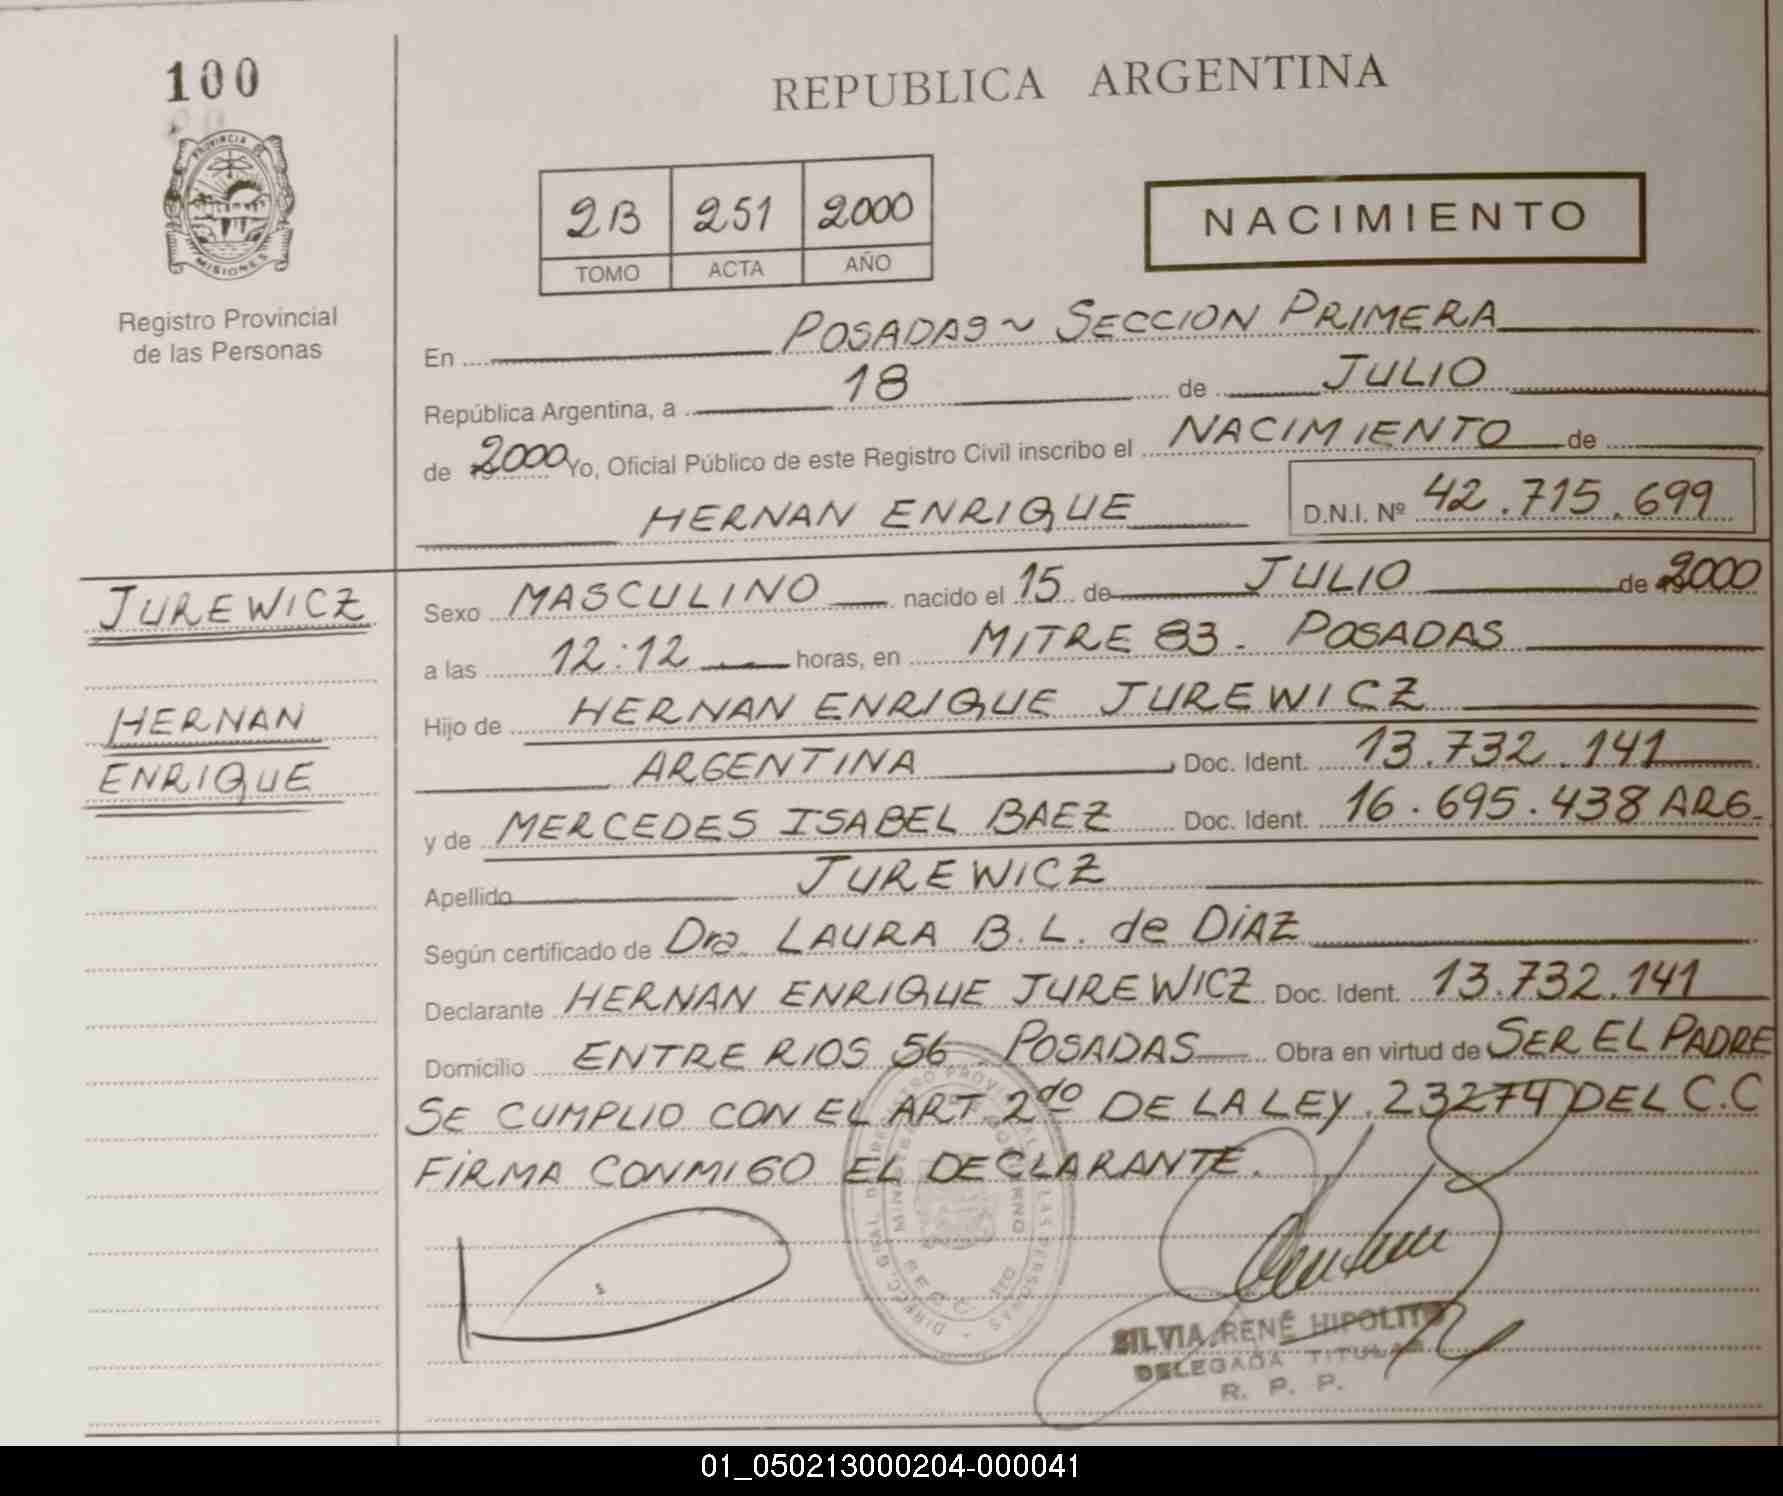 100
PROVINCIA DE
MISIONES
Registro Provincial
de las Personas
REPUBLICA ARGENTINA
2B 251 2000
TOMO ACTA AÑO
NACIMIENTO
En POSADAS ~ SECCION PRIMERA
República Argentina, a 18 de JULIO
de 2000 Yo, Oficial Público de este Registro Civil inscribo el NACIMIENTO de
HERNAN ENRIQUE D.N.I. Nº 42.715.699
JUREWICZ
HERNAN
ENRIQUE
Sexo MASCULINO nacido el 15 de JULIO de 2000
a las 12:12 horas, en MITRE 83 - POSADAS
Hijo de HERNAN ENRIQUE JUREWICZ
ARGENTINA Doc. Ident. 13.732.141
y de MERCEDES ISABEL BAEZ Doc. Ident. 16.695.438 ARG.
Apellido JUREWICZ
Según certificado de Dra. LAURA B. L. de DIAZ
Declarante HERNAN ENRIQUE JUREWICZ Doc. Ident. 13.732.141
Domicilio ENTRE RIOS 56 POSADAS Obra en virtud de SER EL PADRE
SE CUMPLIO CON EL ART 2do DE LA LEY 23274 DEL C.C
FIRMA CONMIGO EL DECLARANTE.
SILVIA RENÉ HIPOLITO
DELEGADA TITULAR
R. P. P.
01_050213000204-000041